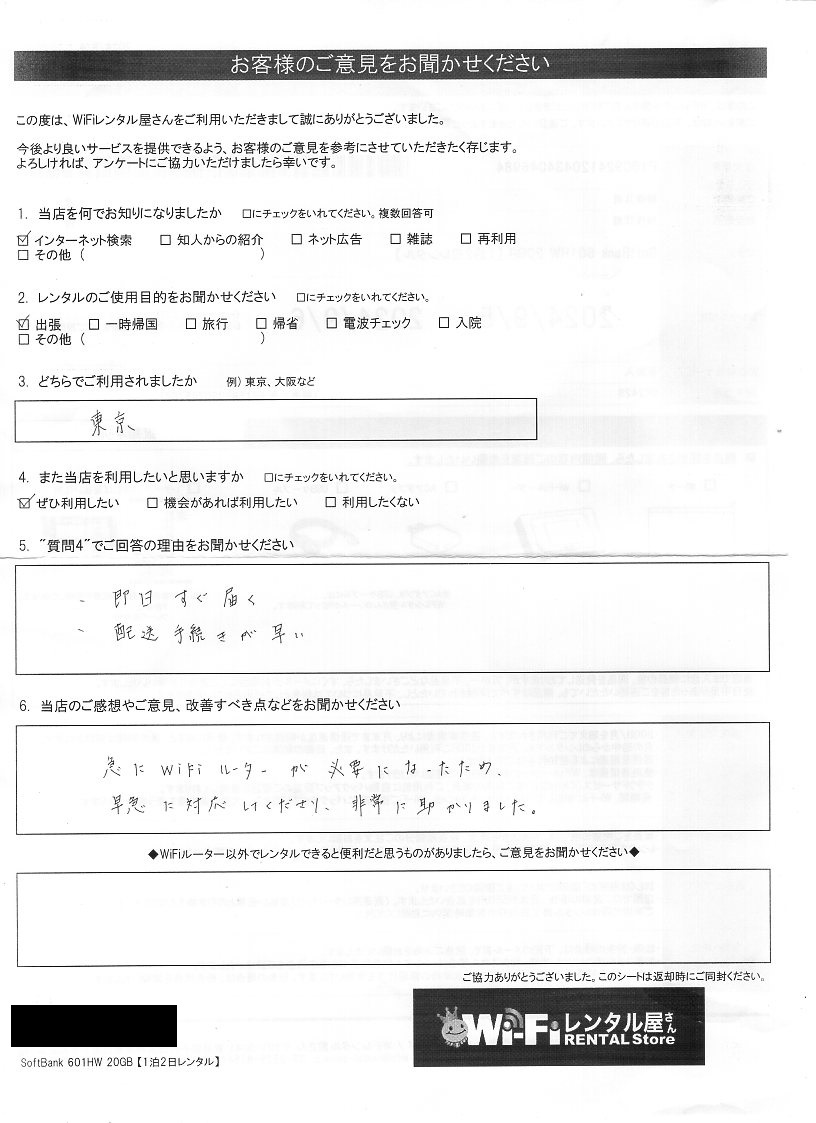 お客様のご意見をお聞かせください
この度は、WiFiレンタル屋さんをご利用いただきまして誠にありがとうございました。
今後より良いサービスを提供できるよう、お客様のご意見を参考にさせていただきたく存じます。
よろしければ、アンケートにご協力いただけましたら幸いです。
1. 当店を何でお知りになりましたか □にチェックをいれてください。複数回答可
☑ インターネット検索 □ 知人からの紹介 □ ネット広告 □ 雑誌 □ 再利用
□ その他 ( )
2. レンタルのご使用目的をお聞かせください □にチェックをいれてください。
☑ 出張 □ 一時帰国 □ 旅行 □ 帰省 □ 電波チェック □ 入院
□ その他 ( )
3. どちらでご利用されましたか 例) 東京、大阪など
東京
4. また当店を利用したいと思いますか □にチェックをいれてください。
☑ ぜひ利用したい □ 機会があれば利用したい □ 利用したくない
5. "質問4"でご回答の理由をお聞かせください
・即日すぐ届く
・配送手続きが早い
6. 当店のご感想やご意見、改善すべき点などをお聞かせください
急にWiFiルーターが必要になったため、
早急に対応してくださり、非常に助かりました。
◆WiFiルーター以外でレンタルできると便利だと思うものがありましたら、ご意見をお聞かせください◆
ご協力ありがとうございました。このシートは返却時にご同封ください。
Wi-Fiレンタル屋さん
RENTAL Store
SoftBank 601HW 20GB【1泊2日レンタル】